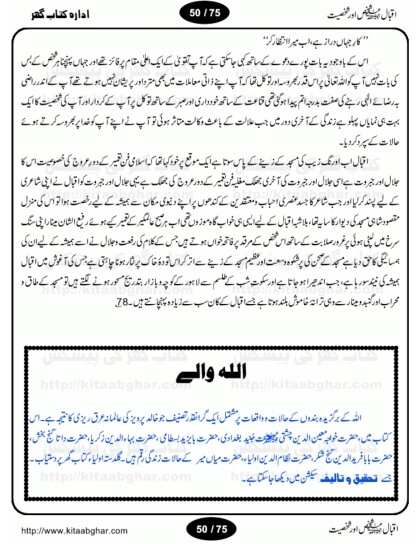 ادارہ کتاب گھر
50 / 75
اقبالؒ شخص اور شخصیت
’’کارِ جہاں دراز ہے، اب میرا انتظار کر‘‘
اس کے باوجود یہ بات پورے دعوے کے ساتھ کہی جاسکتی ہے کہ آپ تقویٰ کے ایک اعلیٰ مقام پر فائز تھے اور جہاں پہنچنا ہر شخص کے بس
کی بات نہیں آپ کو اللہ تعالیٰ پر اس قدر بھروسہ اور توکل تھا کہ آپ اپنے ذاتی معاملات میں بھی متردد اور پریشان نہیں ہوتے تھے آپ کے اندر راضی
بہ رضائے الٰہی رہنے کی صفت بدرجہ اتم پیدا ہوگئی تھی قناعت کے ساتھ خودداری اور صبر کے ساتھ توکل پر آپ کے کردار اور آپ کی شخصیت کا ایک
بہت ہی نمایاں پہلو ہے زندگی کے آخری دور میں جب علالت کے باعث وکالت متاثر ہوئی تو آپ نے اپنے آپ کو خدا پر بھروسہ کرتے ہوئے
حالات کے سپرد کردیا۔
اقبال اب اورنگ زیب کی مسجد کے زینے کے پاس سوتا ہے ایک موقع پر خود کہا تھا کہ اسلامی فن تعمیر کے دور عروج کی خصوصیت اس کا
جلال اور جبروت ہے اسی جلال اور جبروت کی آخری جھلک مغلیہ فن تعمیر کے دور عروج کی جھلک ہے یہی جلال اور جبروت کو اقبال نے اپنی شاعری
کے لیے پسند کیا اور جب شاعر کا جسد عنصری احباب و معتقدین کے کندھوں پر اپنے دنیوی مکان سے ہمیشہ کے لیے رخصت ہوا تو اس کی منزل
مقصود شاہی مسجد کی دیوار کا سایہ تھا، بلاشبہ اقبال کے لیے ایسی ہی خواب گاہ موزوں تھی اب ہر صبح عالمگیر کے تعمیر کیے ہوئے رفیع الشان مینار اپنی سنگ
سرخ میں لپٹی ہوئی پرغرور صلابت کے ساتھ اس شخص کے مرقد پر فاتحہ خواں ہوتے ہیں جس کے کلام کی رفعت و جلال نے اسے ہمیشہ کے لیے ان کی
ہمسائیگی کا حق دیا ہے مسجد کے صحن کی پرشکوہ وسعت اور عظیم مسجد کے زینے سے اتر کر اس تودۂ خاک پر نثار ہونا چاہتی ہے جس کی آغوش میں اقبال
ہمیشہ کی نیند سو رہا ہے، جب اندھیرا ہو جاتا ہے اور سکوت شب کے طلسم سے لاہور کے کوچہ و بازار بتدریج مسحور ہونے لگتے ہیں تو مسجد کے طاق و
محراب اور گنبد و مینار سے وہی ترانہ خاموش بلند ہوتا ہے جسے اقبال کے کان سب سے زیادہ پہچانتے ہیں۔78
کتاب گھر کی پیشکش
http://kitaabghar.com
الله والے
اللہ کے برگزیدہ بندوں کے حالات و واقعات پر مشتمل ایک گرانقدر تصنیف جو خالد پرویز کی عالمانہ عرق ریزی کا نتیجہ ہے۔ اس
کتاب میں، حضرت خواجہ معین الدین چشتیؒ، جنید بغدادی، حضرت بایزید بسطامی، حضرت بہاءالدین زکریا، حضرت داتا گنج بخش،
حضرت بابا فریدالدین گنج شکر، حضرت نظام الدین اولیاء، حضرت میاں میر کے حالات زندگی رقم ہیں۔ گلدستہ اولیاء کتاب گھر پر دستیاب۔
جسے تحقیق و تالیف سیکشن میں دیکھا جاسکتا ہے۔
http://www.kitaabghar.com
50 / 75
اقبالؒ شخص اور شخصیت